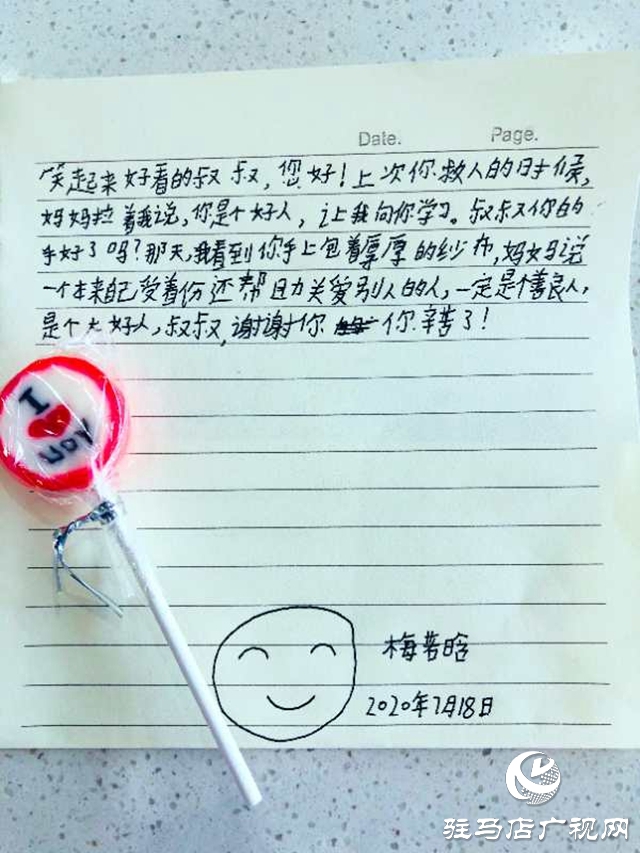 Date. Page.
笑起来好看的叔叔，您好！上次你救人的时候，
妈妈拉着我说，你是个好人，让我向你学习。叔叔你的
手好了吗？那天，我看到你手上包着厚厚的纱布，妈妈说
一个本来自己受着伤还帮助关爱别人的人，一定是个善良人，
是个大好人，叔叔，谢谢你 你辛苦了！
I ❤ you
梅若晗
2020年7月18日
驻马店广视网